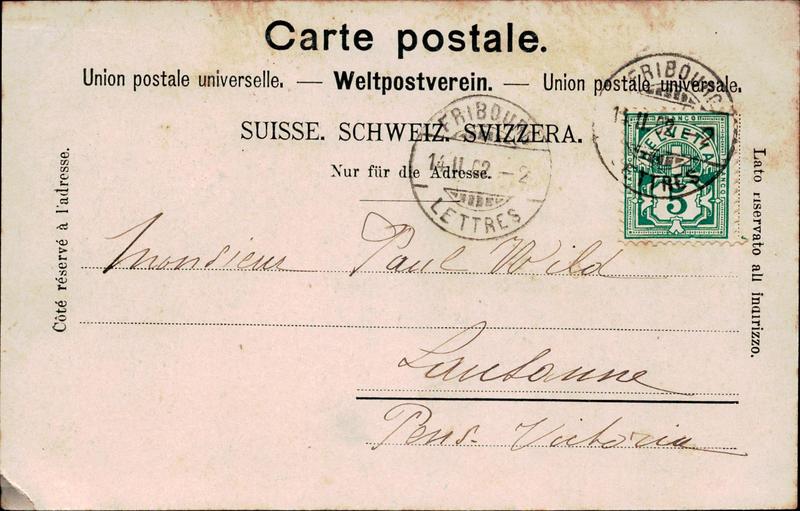 Carte postale.
Union postale universelle. — Weltpostverein. — Union postale universale.
SUISSE. SCHWEIZ. SVIZZERA.
Nur für die Adresse.
Côté réservé à l'adresse.
Lato riservato all indirizzo.
FRIBOURG
14.II.02.–2
LETTRES
FRIBOURG
14.II.02
LETTRES
FRANCO
HELVETIA
5
Monsieur Paul Wild
Lausanne
Pens. Victoria